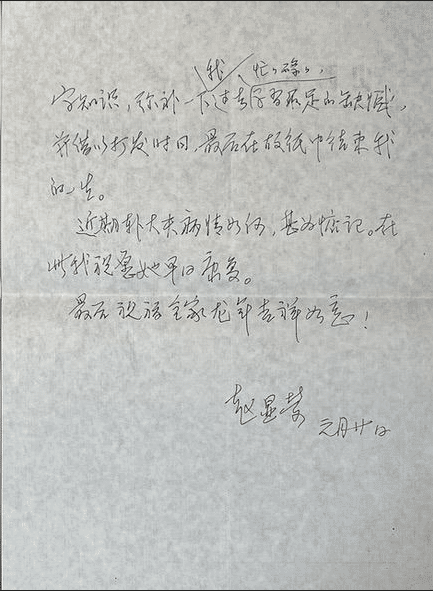 我 忙忙碌碌,
字知识,弥补一下过去学习不足的缺憾,
并借以打发时日,最后在故纸中结束我
的一生。
近期 大夫病情如何,甚为惦记。在
此我祝愿她早日康复。
最后祝福全家龙年吉祥如意!
赵显荣
元月廿日